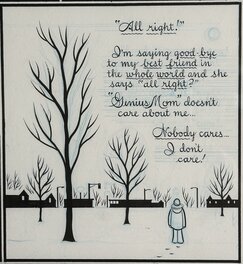 "All right!"
I'm saying good-bye
to my best friend in
the whole world and she
says "all right?"
"Genius Mom" doesn't
care about me...
Nobody cares...
I don't
care!